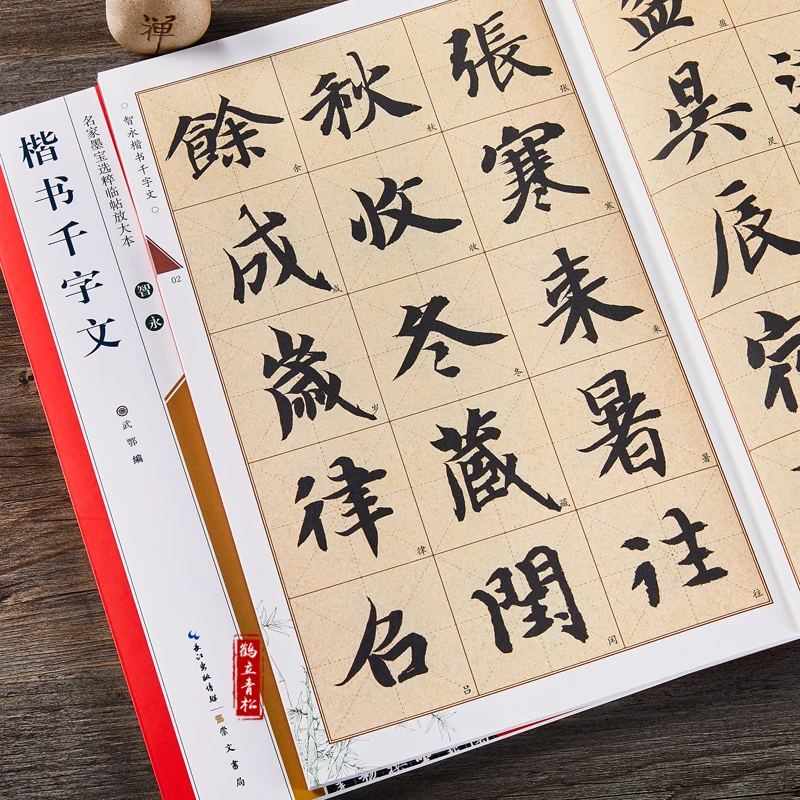 禅
楷书千字文
名家墨宝选粹临帖放大本
智永
武鄂 编
长江出版传媒
崇文书局
鹤立青松
○智永楷书千字文○
02
盈昃辰宿
盈昃
張寒来暑往
张寒来暑往
秋收冬藏閏
秋收冬藏闰
餘成歲律呂
余成岁律吕